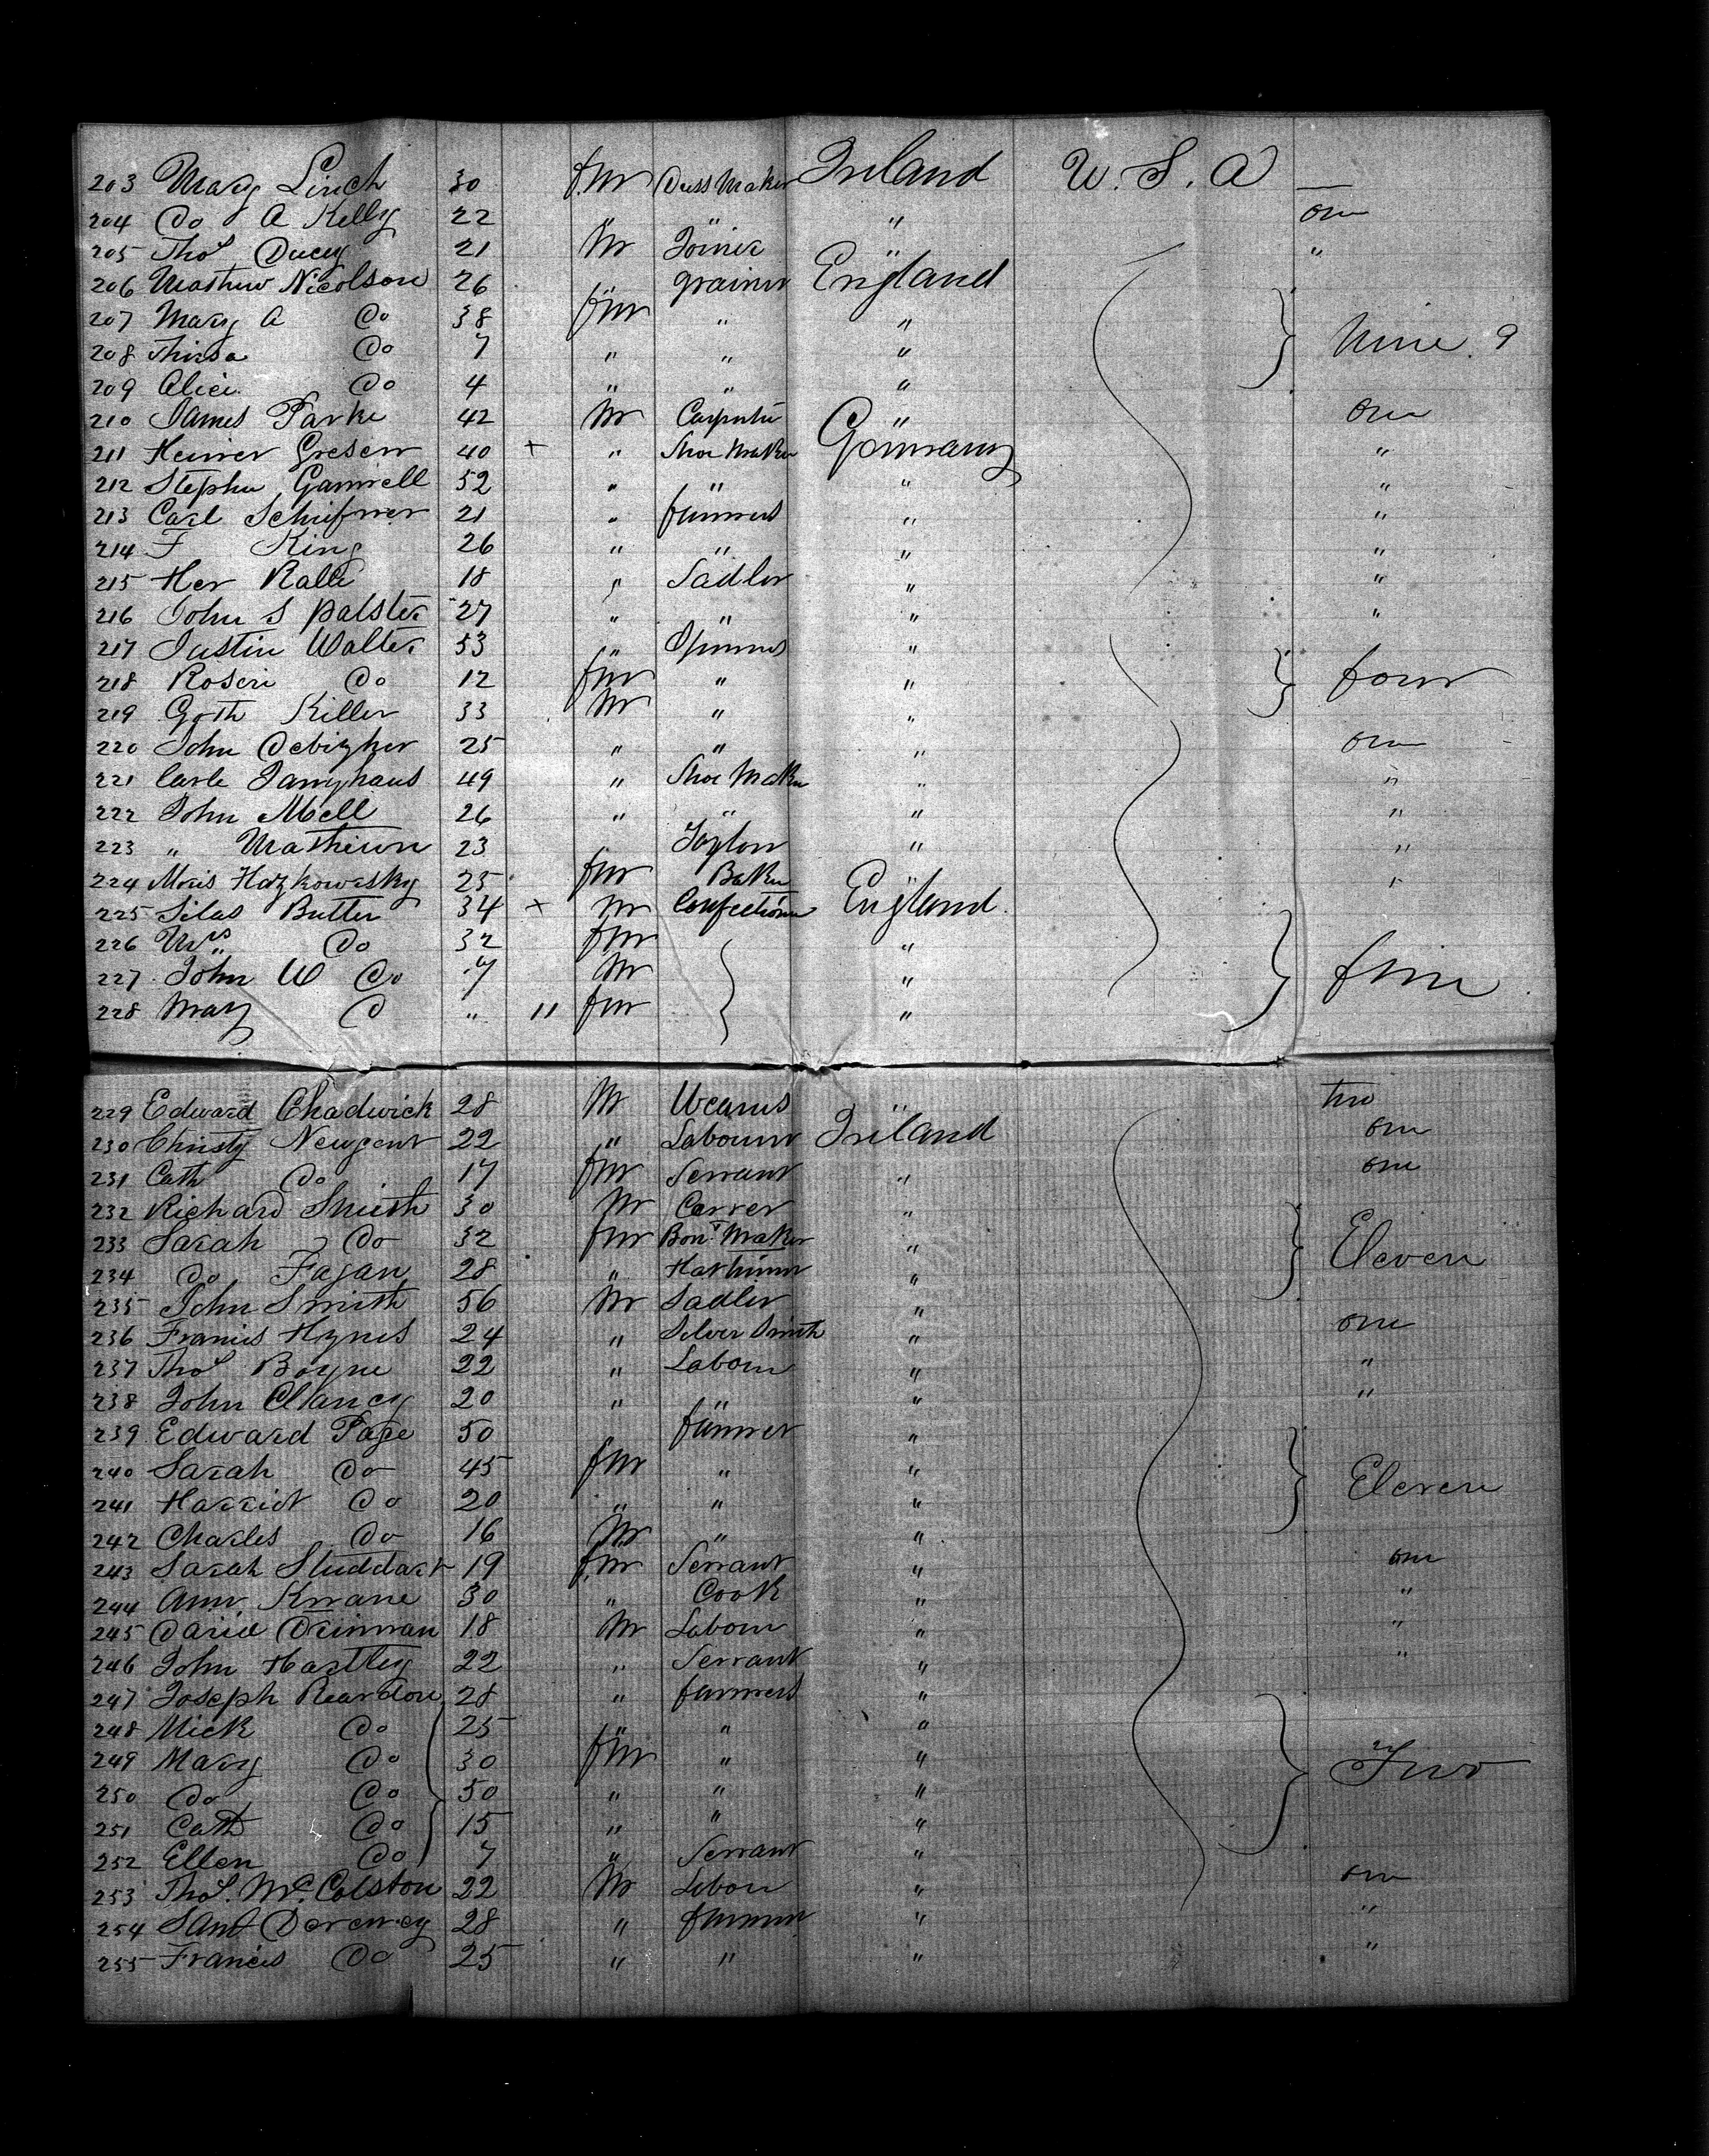 203 Mary Linch 30 fm Dress Maker Ireland U. S. A —
204 Do A Kelly 22 " " " one
205 Thos Ducey 21 M Joiner " "
206 Mathew Nicolson 26 " grainer England
207 Mary A Do 38 fm " "
208 Thirsa Do 7 " " " Nine 9
209 Alice Do 4 " " "
210 James Parke 42 M Carpenter " one
211 Heiner Gresen 40 + " Shoe Maker Germany "
212 Stephen Gamwell 52 " " " "
213 Carl 21 " farmers " "
214 F King 26 " " " "
215 Her Ralle 18 " Sadler " "
216 John S Palster 27 " " " "
217 Justin Walter 53 " farmers "
218 Rosen Do 12 fm " " four
219 Goth Killer 33 M " "
220 John 25 " " " one
221 Carle 49 " Shoe Maker " "
222 John Mell 26 " " " "
223 " Mathewn 23 " Taylor " "
224 Moris Hazkowesky 25 fm Baker " "
225 Silas Butter 34 + M Confectioner England
226 Mrs Do 32 fm "
227 John W Do 7 M " five
228 Mary D " 11 fm "
229 Edward Chadwick 28 M Weavers " two
230 Christy Newgent 22 " Labourer Ireland one
231 Cath Do 17 fm Servant " one
232 Richard Smith 30 M Carver "
233 Sarah Do 32 fm Bont Maker " Eleven
234 Do Fagan 28 " "
235 John Smith 56 M Sadler "
236 Francis Hynes 24 " Silver Smith " one
237 Thos Boyne 22 " Labour " "
238 John Clancy 20 " " " "
239 Edward Page 50 farmer "
240 Sarah Do 45 fm " "
241 Harriet Do 20 " " " Eleven
242 Charles Do 16 M " "
243 Sarah Studdart 19 fm Servant " one
244 Ann Krrane 30 " Cook " "
245 David Drinnan 18 M Labour " "
246 John Hartley 22 " Servant " "
247 Joseph Reardon 28 " farmers "
248 Mick Do 25 " " "
249 Mary Do 30 fm " " Two
250 Do Do 50 " " "
251 Cath Do 15 " " "
252 Ellen Do 7 " Servant "
253 Thos. Mc. Colston 22 M Labour " one
254 Saml Dorency 28 " farmer " "
255 Francis Do 25 " " " "